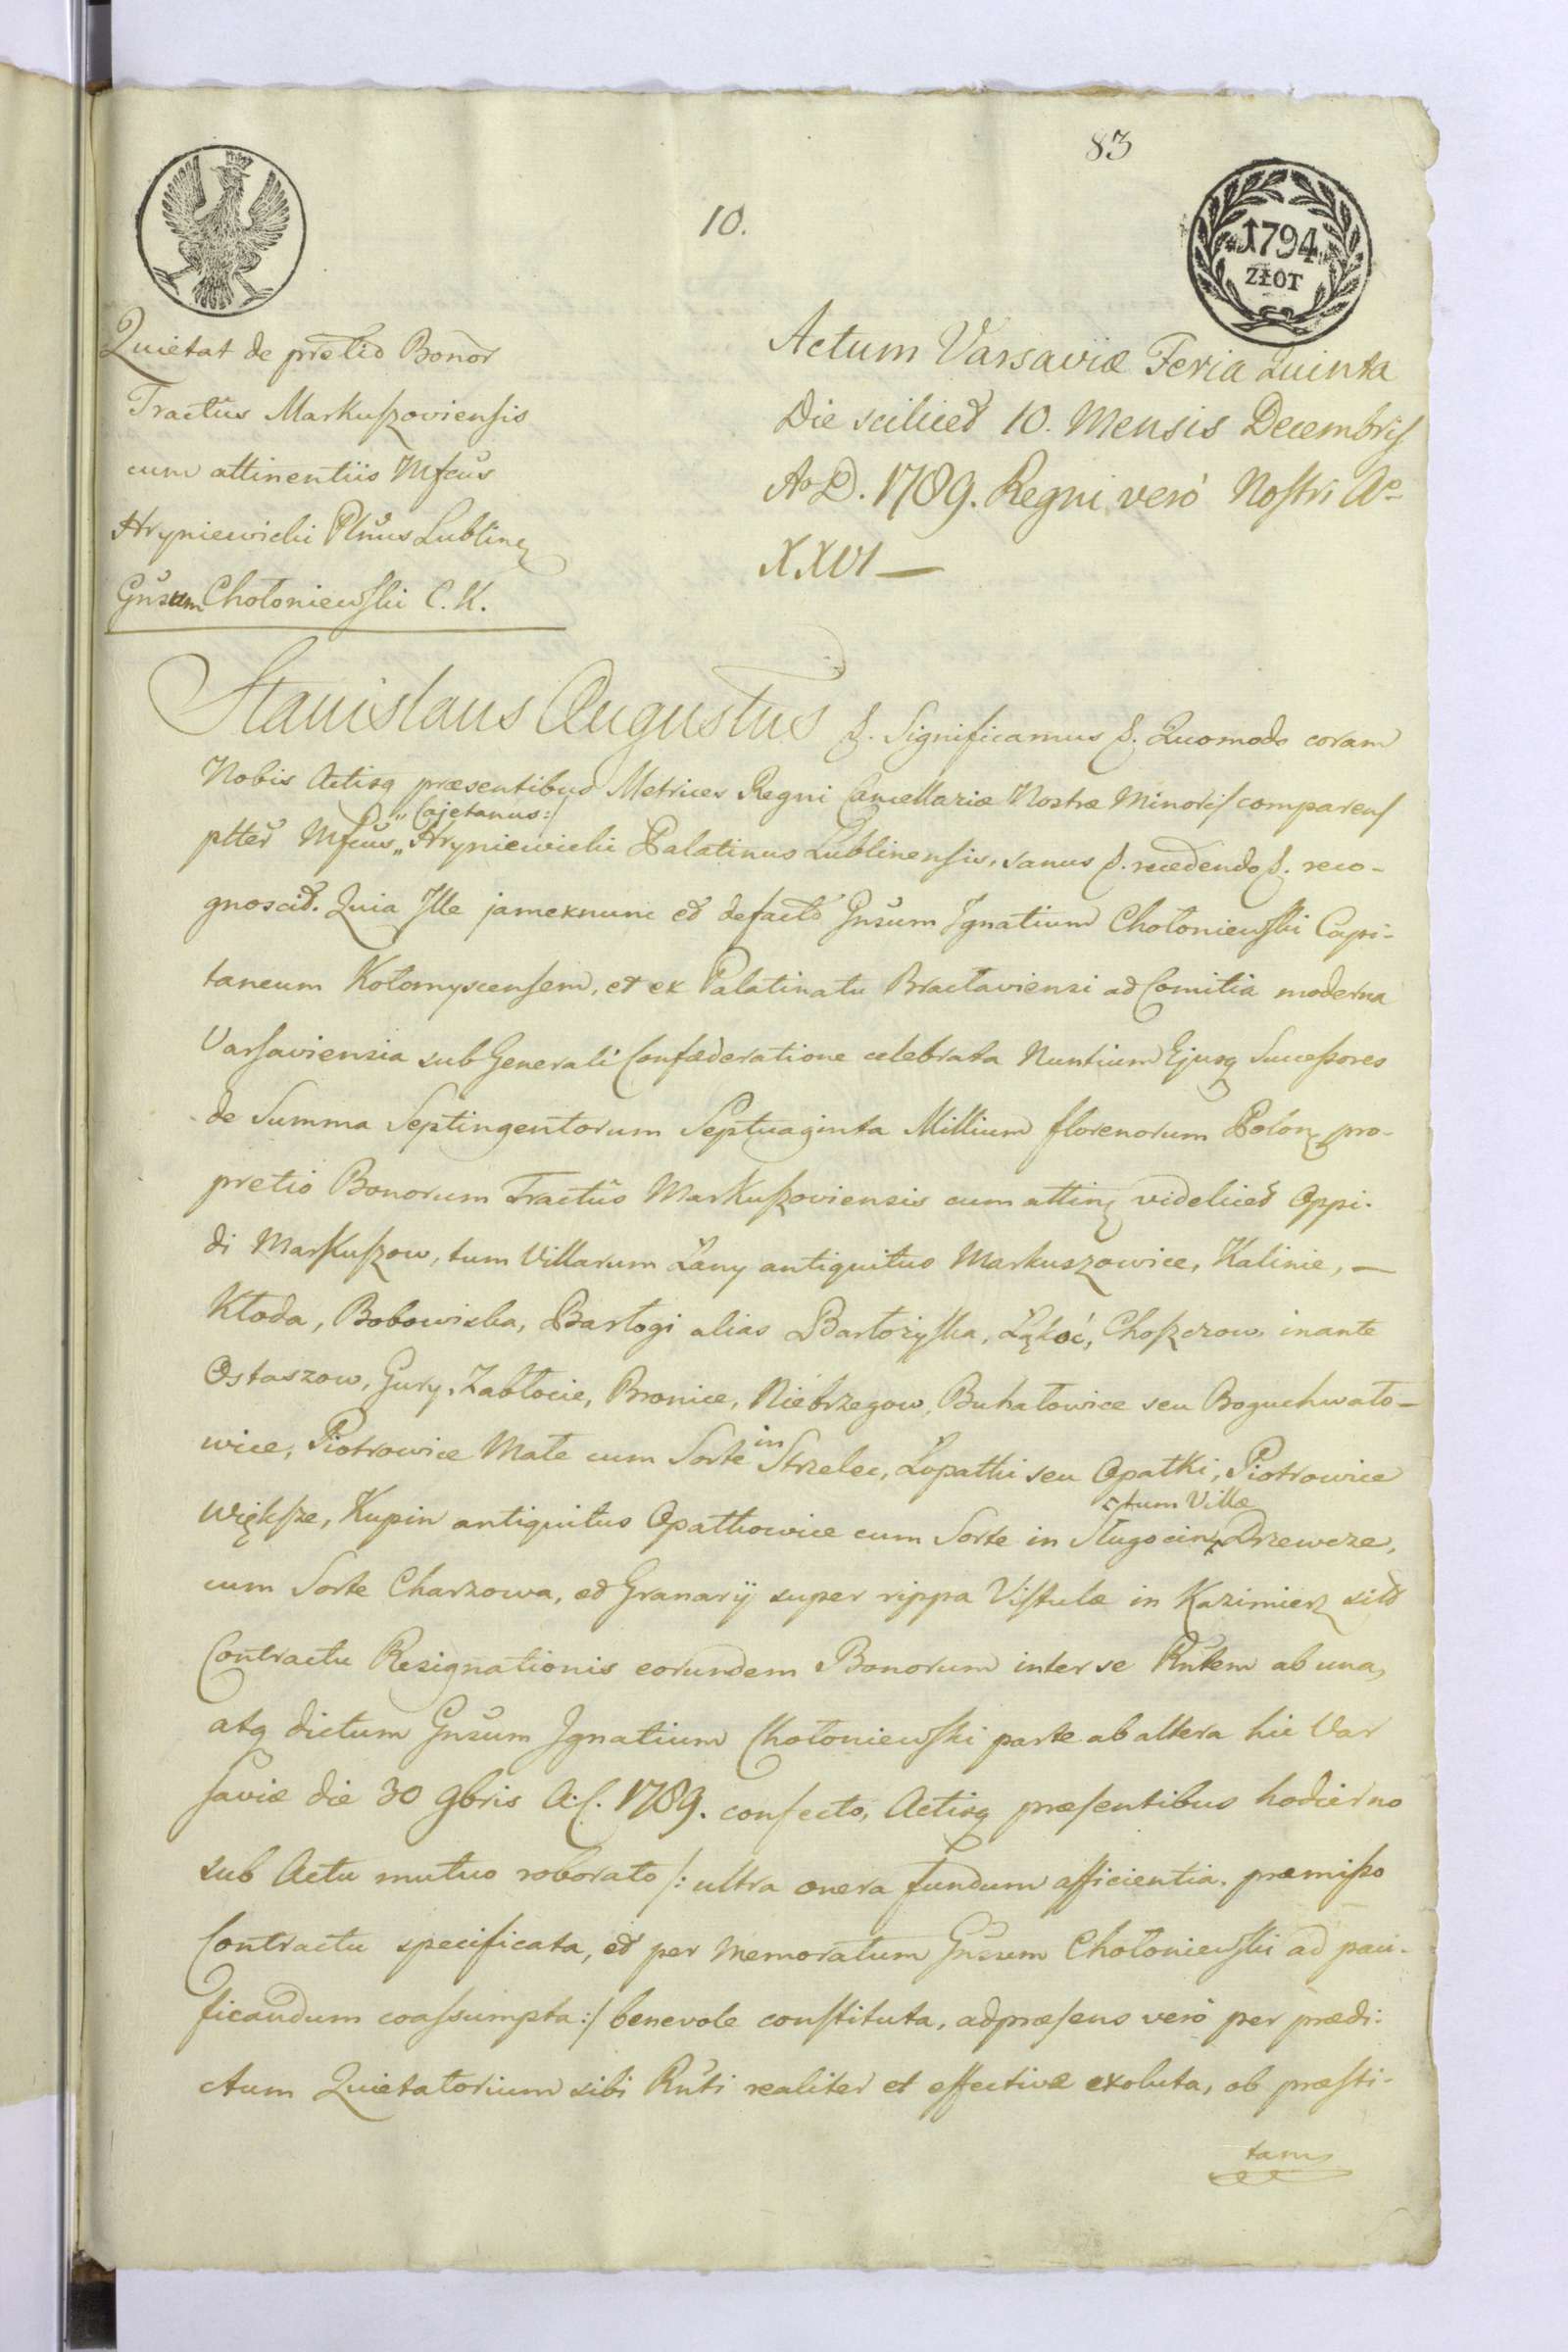 83
10.
1794
ZŁOT
Quietat de pretio Bonor
Tractûs Markuszoviensis
cum attinentiis Mfcus
Hryniewicki Pltnus Lublinen
Gnsum Chołoniewski C. K.
Actum Varsaviæ Feria Quinta
Die scilicet 10. Mensis Decembris
Ao D. 1789. Regni verò Nostri Ao
XXVI —
Stanislaus Augustus &. Significamus &. Quomodo coram
Nobis Actisq præsentibus Metrices Regni Cancellariæ Nostræ Minoris comparens
pltter Mfcus „ Cajetanus :/ Hryniewicki Palatinus Lublinensis, sanus &. recedendo &. reco-
gnoscit. Quia Ille jamexnunc et defacto Gnsum Ignatium Chołoniewski Capi-
taneum Kołomyscensem, et ex Palatinatu Bracłaviensi ad Comitia moderna
Varsaviensia sub Generali Confæderatione celebrata Nuntium Ejusq Successores
de Summa Septingentorum Septuaginta Millium florenorum Polon pro-
pretio Bonorum Tractûs Markuszoviensis cum attin videlicet Oppi-
di Markuszow, tum Villarum Łany antiquitus Markuszowice, Kalinie, —
Kłoda, Bobowiska, Barłogi alias Bartożyska, Łąkoć, Choszczow, inante
Ostaszow, Gury, Zabłocie, Bronice, Niebrzegow, Buhałowice seu Boguchwało-
wice, Piotrowice Małe cum Sorte in Strzelec, Łopatki seu Opatki, Piotrowice
Większe, Kupin antiquitus Opatkowice cum Sorte in Sługocin, tum Villæ Drzewcze,
cum Sorte Charzowa, et Granarij super rippa Vistulæ in Kazimierz sitt
Contractu Resignationis eorundem Bonorum inter se Rntem ab una,
atq dictum Gnsum Ignatium Chołoniewski parte ab altera hic Var
saviæ die 30 9bris A. C. 1789. confecto, Actisq præsentibus hodierno
sub Actu mutuo roborato /: ultra onera fundum afficientia, præmisso
Contractu specificata, et per Memoratum Gnsum Chołoniewski ad paci-
ficandum coassumpta :/ benevole constituta, adpræsens verò per prædi-
ctum Quietatorium sibi Rnti realiter et effectivæ exoluta, ob præsti-
tam